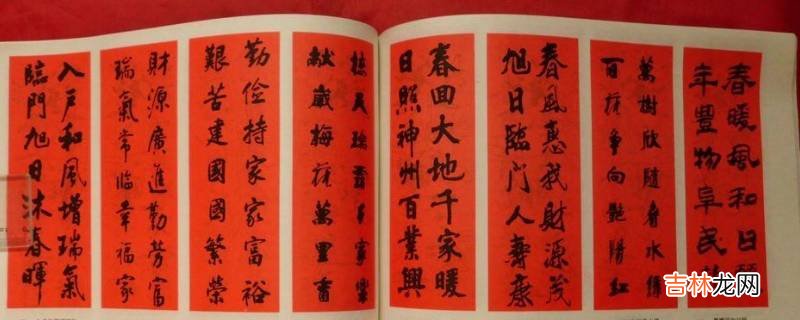 春暖風和日
年豐物阜民
萬樹欣隨春水綠
百花爭向艷陽紅
春風惠我財源茂
旭日臨門人壽康
春回大地千家暖
日照神州百業興
獻歲梅花萬里香
勤俭持家家富裕
艱苦建國國繁榮
財源廣進勤勞富
瑞氣常臨幸福家
入戸和風增瑞氣
臨門旭日沐春暉
吉林龙网